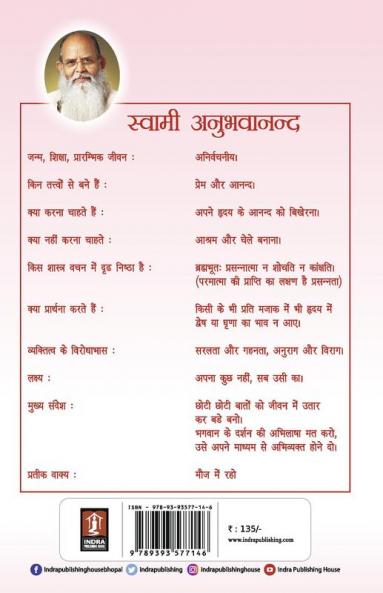 स्वामी अनुभवानन्द
जन्म, शिक्षा, प्रारम्भिक जीवन : अनिर्वचनीय।
किन तत्त्वों से बने हैं : प्रेम और आनन्द।
क्या करना चाहते हैं : अपने हृदय के आनन्द को बिखेरना।
क्या नहीं करना चाहते : आश्रम और चेले बनाना।
किस शास्त्र वचन में दृढ निष्ठा है : ब्रह्मभूतः प्रसन्नात्मा न शोचति न कांक्षति।
(परमात्मा की प्राप्ति का लक्षण है प्रसन्नता)
क्या प्रार्थना करते हैं : किसी के भी प्रति मजाक में भी हृदय में
द्वेष या घृणा का भाव न आए।
व्यक्तित्व के विरोधाभास : सरलता और गहनता, अनुराग और विराग।
लक्ष्य : अपना कुछ नहीं, सब उसी का।
मुख्य संदेश : छोटी छोटी बातों को जीवन में उतार
कर बडे बनो।
भगवान के दर्शन की अभिलाषा मत करो,
उसे अपने माध्यम से अभिव्यक्त होने दो।
प्रतीक वाक्य : मौज में रहो
ISBN - 978-93-93577-14-6
INDRA
PUBLISHING HOUSE
9 789393 577146
₹ : 135/-
www.indrapublishing.com
Indrapublishinghousebhopal Indrapublishing Indrapublishinghouse Indra Publishing House